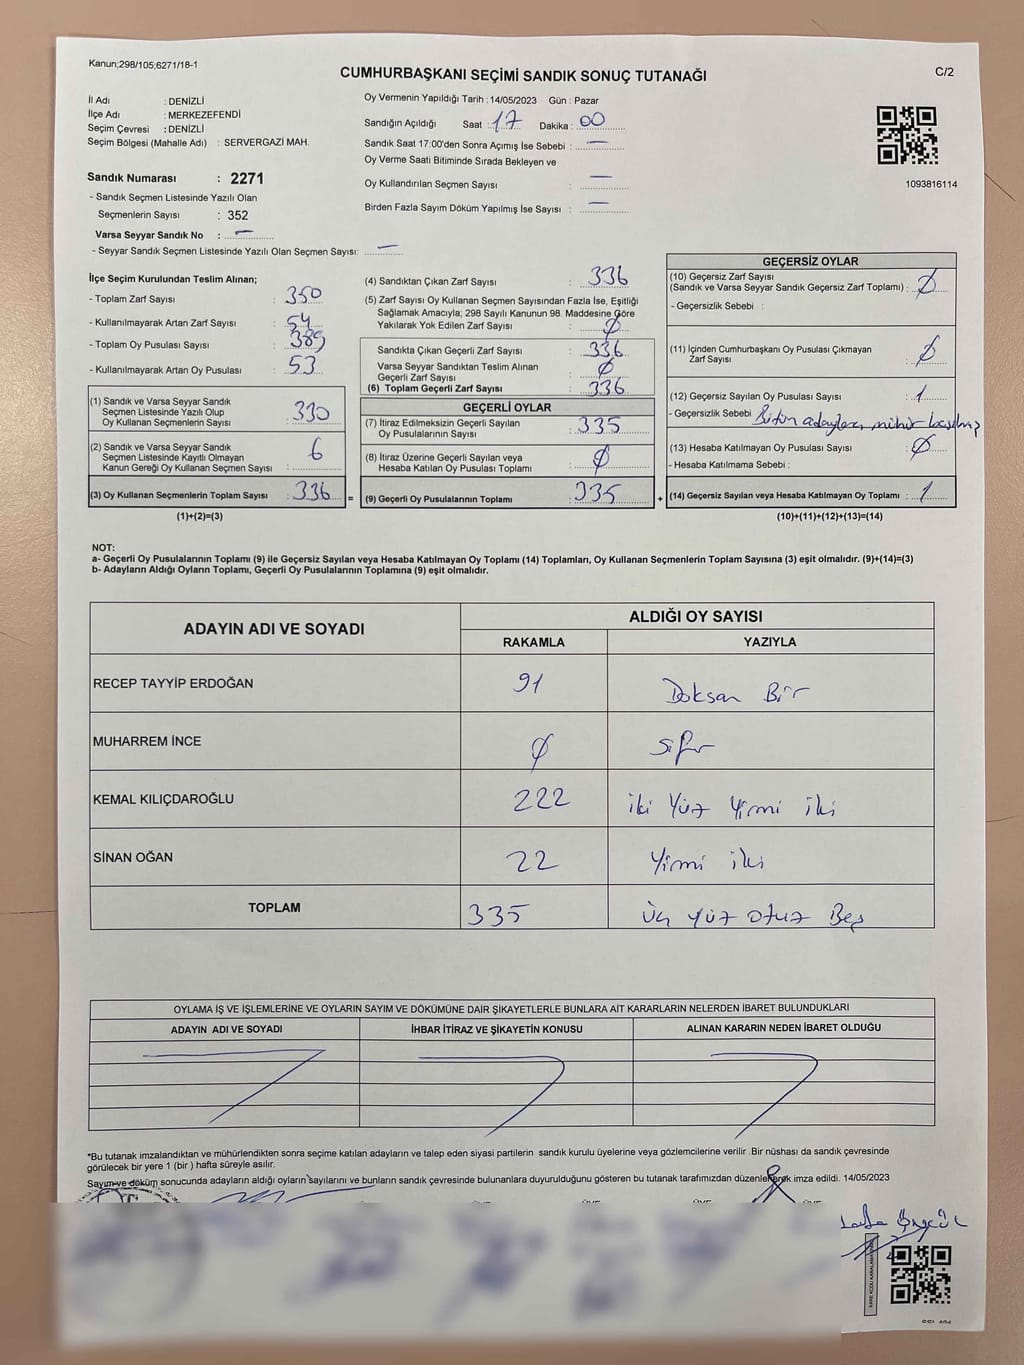 Kanun;298/105;6271/18-1
C/2
CUMHURBAŞKANI SEÇİMİ SANDIK SONUÇ TUTANAĞI
İl Adı : DENİZLİ
İlçe Adı : MERKEZEFENDİ
Seçim Çevresi : DENİZLİ
Seçim Bölgesi (Mahalle Adı) : SERVERGAZİ MAH.
Sandık Numarası : 2271
- Sandık Seçmen Listesinde Yazılı Olan
Seçmenlerin Sayısı : 352
Varsa Seyyar Sandık No : —
- Seyyar Sandık Seçmen Listesinde Yazılı Olan Seçmen Sayısı: —
Oy Vermenin Yapıldığı Tarih : 14/05/2023 Gün : Pazar
Sandığın Açıldığı Saat : 17 Dakika : 00
Sandık Saat 17:00'den Sonra Açılmış İse Sebebi : —
Oy Verme Saati Bitiminde Sırada Bekleyen ve
Oy Kullandırılan Seçmen Sayısı : —
Birden Fazla Sayım Döküm Yapılmış İse Sayısı : —
1093816114
İlçe Seçim Kurulundan Teslim Alınan;
- Toplam Zarf Sayısı : 350
- Kullanılmayarak Artan Zarf Sayısı : 54
- Toplam Oy Pusulası Sayısı : 389
- Kullanılmayarak Artan Oy Pusulası : 53
(1) Sandık ve Varsa Seyyar Sandık
Seçmen Listesinde Yazılı Olup
Oy Kullanan Seçmenlerin Sayısı : 330
(2) Sandık ve Varsa Seyyar Sandık
Seçmen Listesinde Kayıtlı Olmayan
Kanun Gereği Oy Kullanan Seçmen Sayısı : 6
(3) Oy Kullanan Seçmenlerin Toplam Sayısı : 336 =
(1)+(2)=(3)
(4) Sandıktan Çıkan Zarf Sayısı : 336
(5) Zarf Sayısı Oy Kullanan Seçmen Sayısından Fazla İse, Eşitliği
Sağlamak Amacıyla; 298 Sayılı Kanunun 98. Maddesine Göre
Yakılarak Yok Edilen Zarf Sayısı : Ø
Sandıkta Çıkan Geçerli Zarf Sayısı : 336
Varsa Seyyar Sandıktan Teslim Alınan
Geçerli Zarf Sayısı : Ø
(6) Toplam Geçerli Zarf Sayısı : 336
GEÇERLİ OYLAR
(7) İtiraz Edilmeksizin Geçerli Sayılan
Oy Pusulalarının Sayısı : 335
(8) İtiraz Üzerine Geçerli Sayılan veya
Hesaba Katılan Oy Pusulası Toplamı : Ø
(9) Geçerli Oy Pusulalarının Toplamı : 335 +
GEÇERSİZ OYLAR
(10) Geçersiz Zarf Sayısı
(Sandık ve Varsa Seyyar Sandık Geçersiz Zarf Toplamı) : Ø
- Geçersizlik Sebebi :
(11) İçinden Cumhurbaşkanı Oy Pusulası Çıkmayan
Zarf Sayısı : Ø
(12) Geçersiz Sayılan Oy Pusulası Sayısı : 1
- Geçersizlik Sebebi : Bütün adaylara mühür basılmış
(13) Hesaba Katılmayan Oy Pusulası Sayısı : Ø
- Hesaba Katılmama Sebebi :
(14) Geçersiz Sayılan veya Hesaba Katılmayan Oy Toplamı : 1
(10)+(11)+(12)+(13)=(14)
NOT:
a- Geçerli Oy Pusulalarının Toplamı (9) ile Geçersiz Sayılan veya Hesaba Katılmayan Oy Toplamı (14) Toplamları, Oy Kullanan Seçmenlerin Toplam Sayısına (3) eşit olmalıdır. (9)+(14)=(3)
b- Adayların Aldığı Oyların Toplamı, Geçerli Oy Pusulalarının Toplamına (9) eşit olmalıdır.
ADAYIN ADI VE SOYADI ALDIĞI OY SAYISI
RAKAMLA YAZIYLA
RECEP TAYYİP ERDOĞAN 91 Doksan Bir
MUHARREM İNCE Ø sıfır
KEMAL KILIÇDAROĞLU 222 iki Yüz Yirmi iki
SİNAN OĞAN 22 Yirmi iki
TOPLAM 335 Üç yüz otuz Beş
OYLAMA İŞ VE İŞLEMLERİNE VE OYLARIN SAYIM VE DÖKÜMÜNE DAİR ŞİKAYETLERLE BUNLARA AİT KARARLARIN NELERDEN İBARET BULUNDUKLARI
ADAYIN ADI VE SOYADI İHBAR İTİRAZ VE ŞİKAYETİN KONUSU ALINAN KARARIN NEDEN İBARET OLDUĞU
*Bu tutanak imzalandıktan ve mühürlendikten sonra seçime katılan adayların ve talep eden siyasi partilerin sandık kurulu üyelerine veya gözlemcilerine verilir .Bir nüshası da sandık çevresinde
görülecek bir yere 1 (bir ) hafta süreyle asılır.
Sayım ve döküm sonucunda adayların aldığı oyların sayılarını ve bunların sandık çevresinde bulunanlara duyurulduğunu gösteren bu tutanak tarafımızdan düzenlenerek imza edildi. 14/05/2023